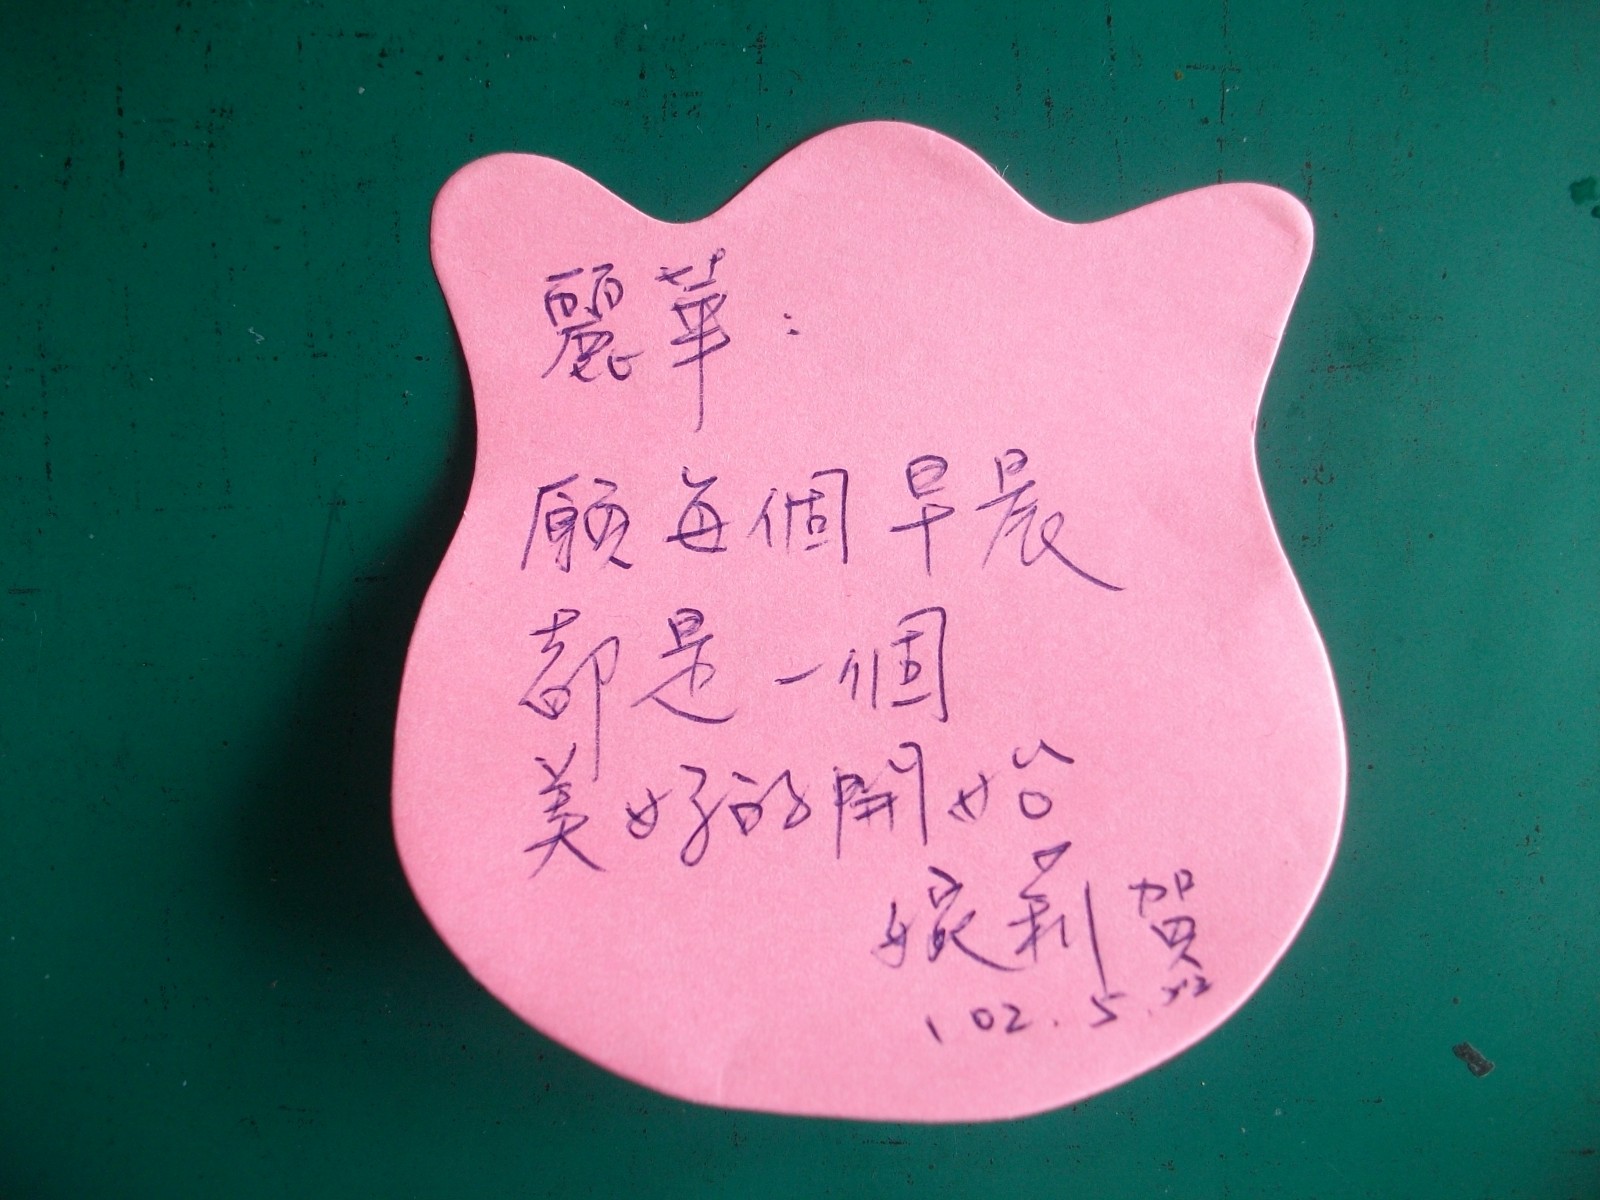 麗華：
願每個早晨
都是一個
美好的開始
莉賀
102.5.